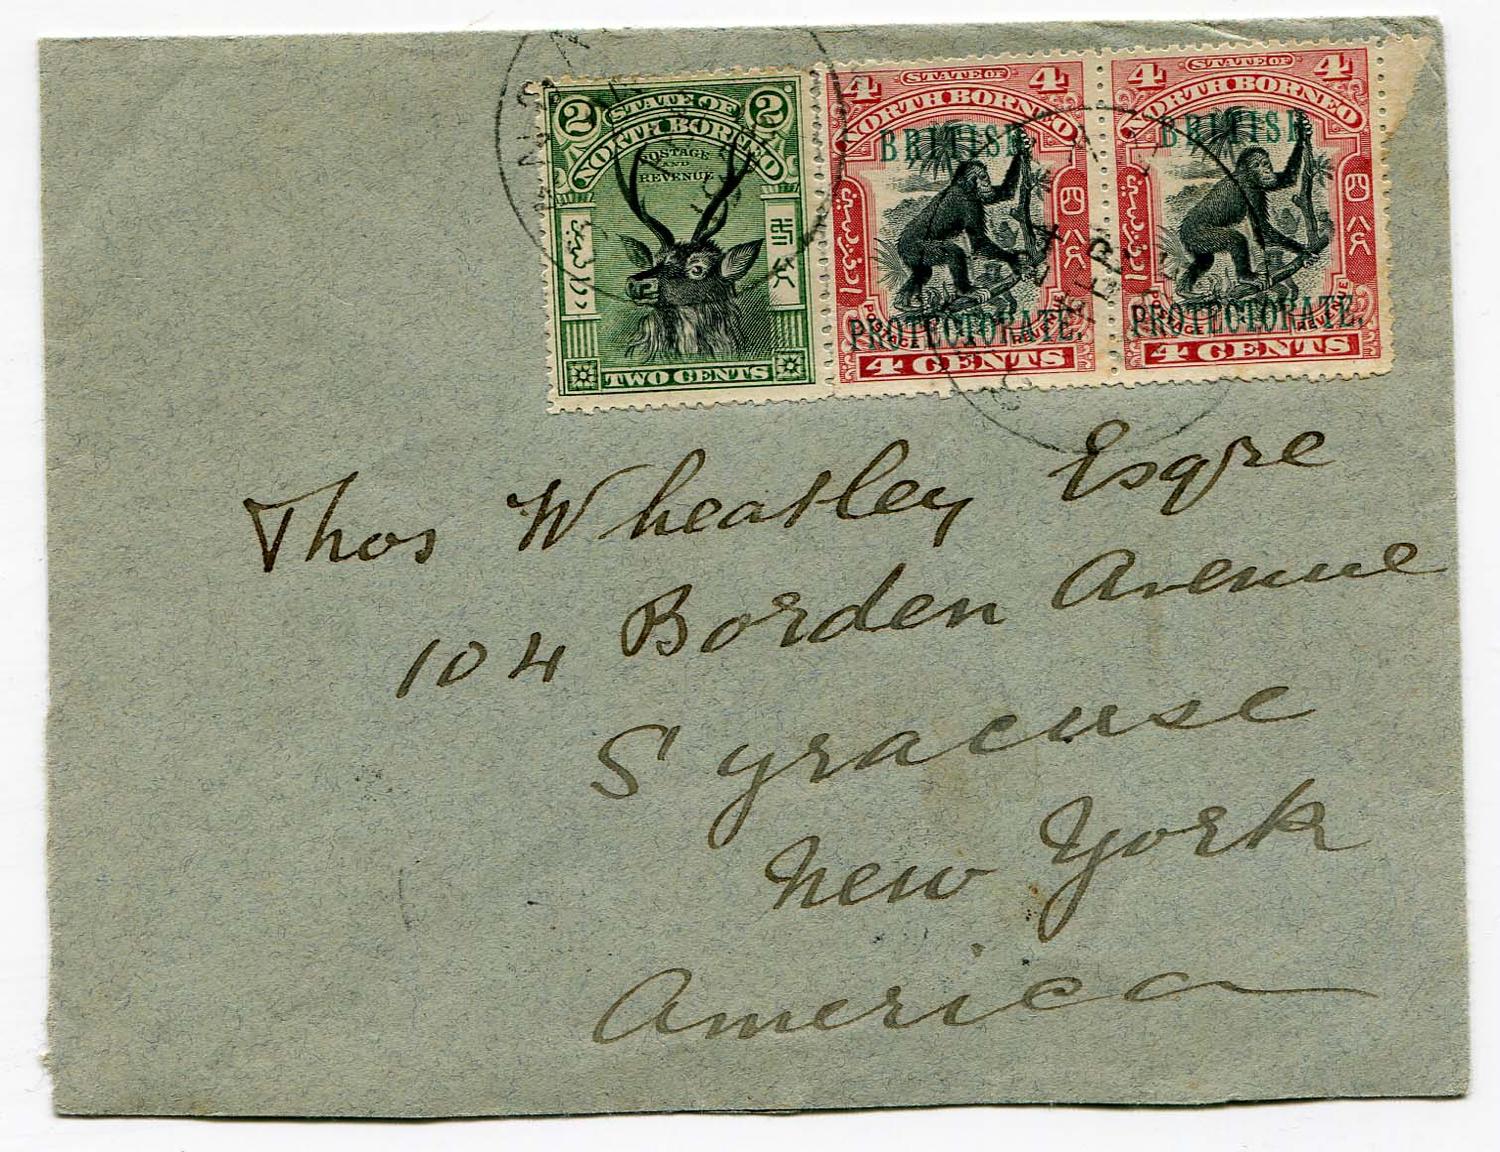 2 STATE OF 2
NORTH BORNEO
POSTAGE
AND
REVENUE
TWO CENTS
4 STATE OF 4
NORTH BORNEO
BRITISH
PROTECTORATE.
POSTAGE REVENUE
4 CENTS
4 STATE OF 4
NORTH BORNEO
BRITISH
四八尺
PROTECTORATE.
POSTAGE REVENUE
4 CENTS
24
FEB
Thos Wheatley Esqre
104 Borden Avenue
Syracuse
New York
America